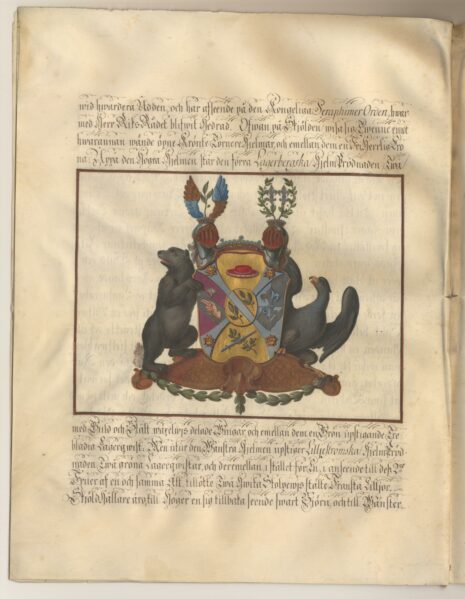 wid hwardera Üdden, och har afseende på den Kongeliga Seraphimer Orden, hwar
med Herr Riks Rådet blifwit hedrad. Ofwan på Skölden wisa sig Twenne emot
hwarannan wände öpne Krönte Torner Hjelmar, och emellan dem en Fri Herrlig Cro
na: Uppå den Högra Hjelmen står den förra Lagerbergska Hjelm Prydnaden, Twå
med Guld och Blått wäxelwis delade Wingar och emellan dem en Grön upstigande Tre
bladig Lagerqwist: Men utur den Wänstra Hjelmen upstiger Lilljeströmska Hjelm Pryd
naden, Twå gröna Lagerqwistar, och deremellan i stället för En, i anseende till desse
af en och samma Ätt, tillötte Twå Hwita Stolpewis stälte Franska Liljor.
Sköld Hållare äro, till Höger en sig tillbaka seende Swart Björn, och till Wänster